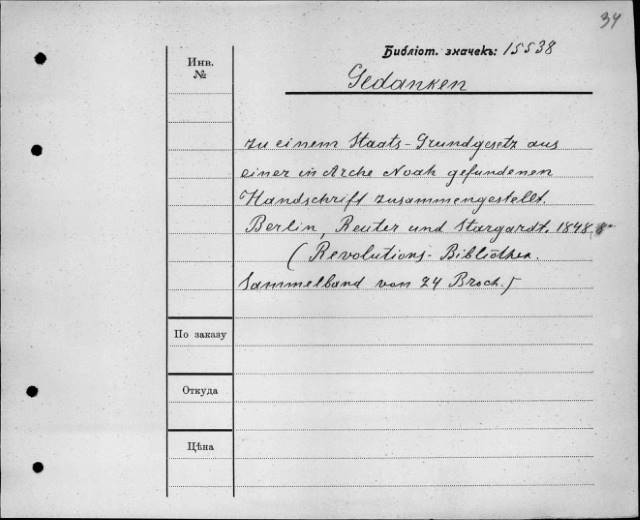 34
Библіот. значекъ: 15538
Инв.
№
Gedanken
zu einem Staats-Grundgesetz aus
einer in Arche Noah gefundenen
Handschrift zusammengestellt.
Berlin, Reuter und Stargardt. 1848. 8°
(Revolutions-Bibliothek.
Sammelband von 24 Broch.)
По заказу
Откуда
Цѣна